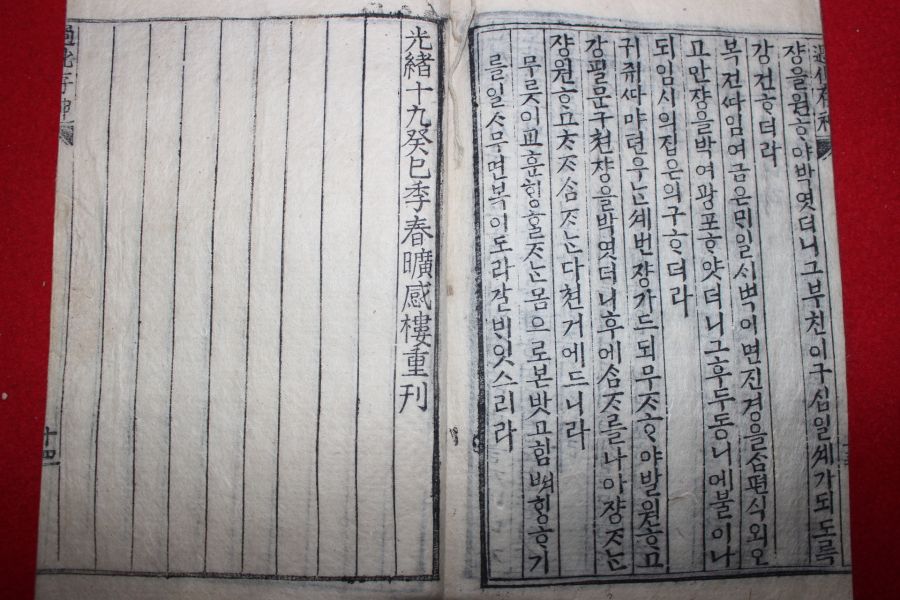 쟝을원ᄒᆞ야박엿더니그부친이구십일셰가되도록
강건ᄒᆞ더라
복젼ᄯᅡ임여금은ᄆᆡ일ᄉᆡ벽이면진경을삼편식외오
고안쟝을박여광포ᄒᆞ얏더니그후두동ᄂᆡ에불이나
되임시의집은의구ᄒᆞ더라
귀쥬ᄯᅡ마련우ᄂᆞᆫ셰번쟝가드되무ᄌᆞᄒᆞ야발원ᄒᆞ고
강필문구쳔쟝을박엿더니후에삼ᄌᆞ를나아쟝ᄌᆞᄂᆞᆫ
쟝원ᄒᆞ고ᄎᆞᄌᆞ삼ᄌᆞᄂᆞᆫ다쳔거에드니라
무릇이교훈ᄒᆡᆼᄒᆞᆯᄌᆞᄂᆞᆫ몸으로본밧고힘ᄡᅥᄒᆡᆼᄒᆞ기
를일ᄉᆞ무면복이도라갈ᄇᆡ잇스리라
光緖十九癸巳季春曠感樓重刊
十四